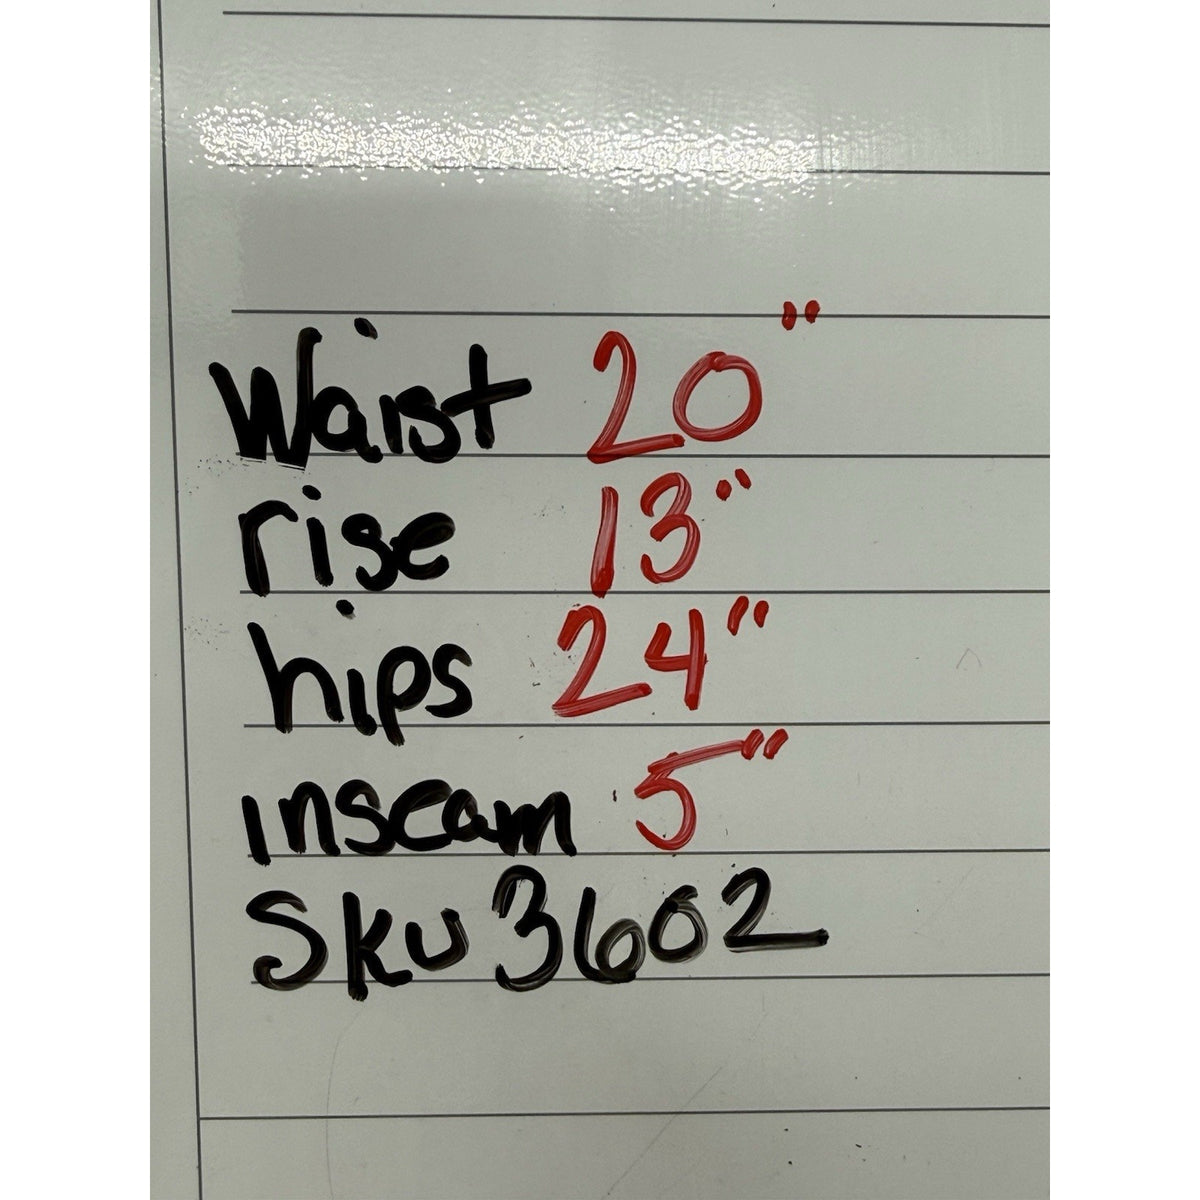 Waist 20"
rise 13"
hips 24"
inseam 5"
Sku 3602